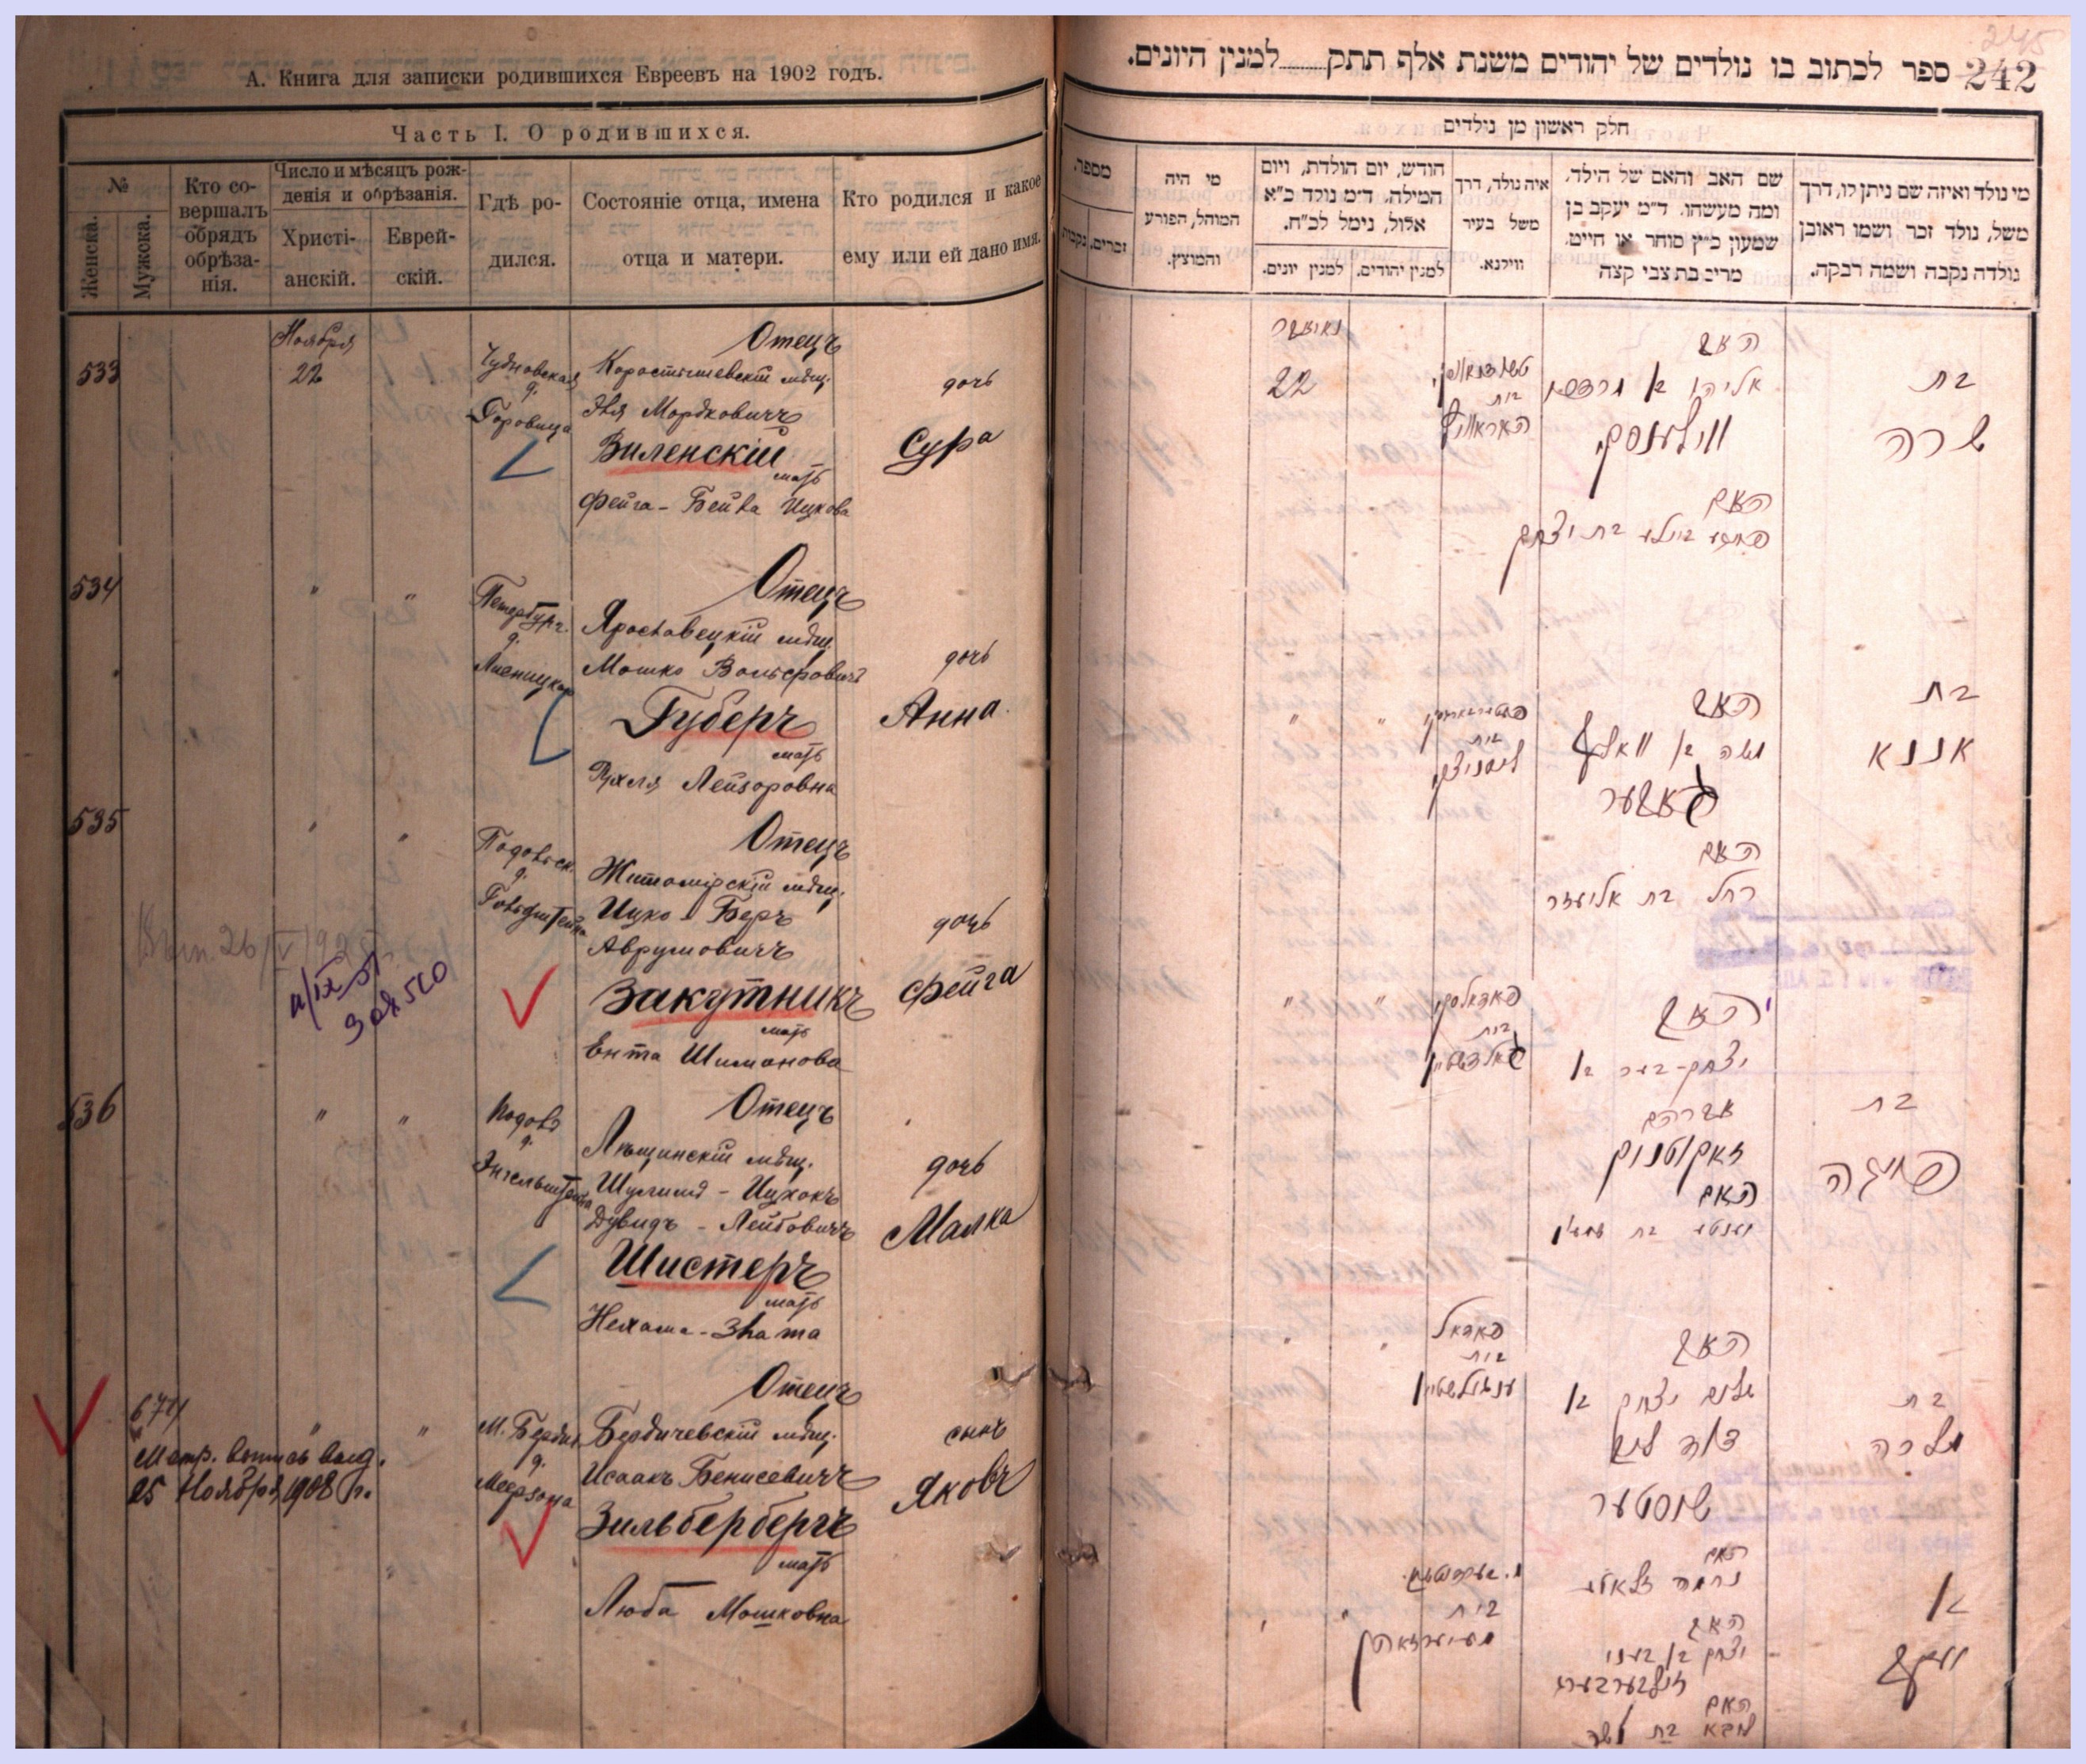 А. Книга для записки родившихся Евреевъ на 1902 годъ.
Часть I. О родившихся.
№
Женска.
Мужска.
Кто совершалъ обрядъ обрѣзанія.
Число и мѣсяцъ рожденія и обрѣзанія.
Христіанскій.
Еврейскій.
Гдѣ родился.
Состояніе отца, имена отца и матери.
Кто родился и какое ему или ей дано имя.
533
Ноября
22
Чудновская
д.
Горовица
Отецъ
Коростышевскій мѣщ.
Эля Мордковичъ
Виленскій
мать
Фейга-Бейла Ицкова
дочь
Сура
534
"
"
Петербург.
д.
Отецъ
Ярославецкій мѣщ.
Мошко Вольфовичъ
Губеръ
мать
Рухля Лейзоровна
дочь
Анна
535
"
"
Подольск.
д.
Гольдштейна
Отецъ
Житомірскій мѣщ.
Ицко-Беръ
Аврумовичъ
Закутникъ
мать
Ента Шимонова
дочь
Фейга
536
"
"
Подовъ
д.
Энгельштейна
Отецъ
Лѣщинскій мѣщ.
Шулимъ-Ицхокъ
Дувидъ-Лейбовичъ
Шистеръ
мать
Нехама-Злата
дочь
Малка
671
Метр. выпись выд.
25 Ноября 1908 г.
"
"
М. Бердич.
д.
Меерзона
Отецъ
Бердичевскій мѣщ.
Исаакъ Бенисевичъ
Зильбербергъ
мать
Люба Мошковна
сынъ
Яковъ
242
ספר לכתוב בו נולדים של יהודים משנת אלף תתק........למנין היונים.
חלק ראשון מן נולדים
מי נולד ואיזה שם ניתן לו, דרך
משל, נולד זכר ושמו ראובן
נולדה נקבה ושמה רבקה.
שם האב והאם של הילד,
ומה מעשהו. ד״מ יעקב בן
שמעון כ״ץ סוחר או חייט,
מרים בת צבי קצה
איה נולד, דרך
משל בעיר
ווילנא.
חודש, יום הולדת, ויום
המילה, ד״מ נולד כ״א
אלול, נימל לכ״ח.
למנין יהודים.
למנין יונים.
מי היה
המוהל, הפורע
והמוצץ.
מספר.
זכרים.
נקבות
בת
שרה
האב
אליהו בן מרדכי
ווילענסקי
האם
פייגע ביילע בת יצחק
בית
22
בת
אננא
האב
משה בן וואלף
גובער
האם
רחל בת אליעזר
בית
"
"
בת
פייגה
האב
יצחק-בער בן
אברהם
זאקוטניק
האם
יענטע בת שמעון
בית
גאלדשטיין
"
"
בת
מלכה
האב
שלום יצחק בן
דוד לייב
שוסטער
האם
נחמה זלאטע
בית
ענגילשטיין
בן
יעקב
האב
יצחק בן בעניש
זילבערבערג
האם
ליבא בת משה
בית